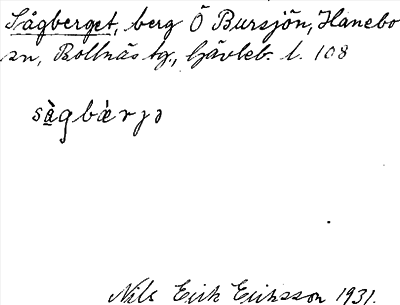 Sågberget, berg Ö Bursjön, Hanebo
sn, Bollnäs tg., Gävleb. l. 108
sàgbæ̀rjə
Nils Erik Eriksson 1931.